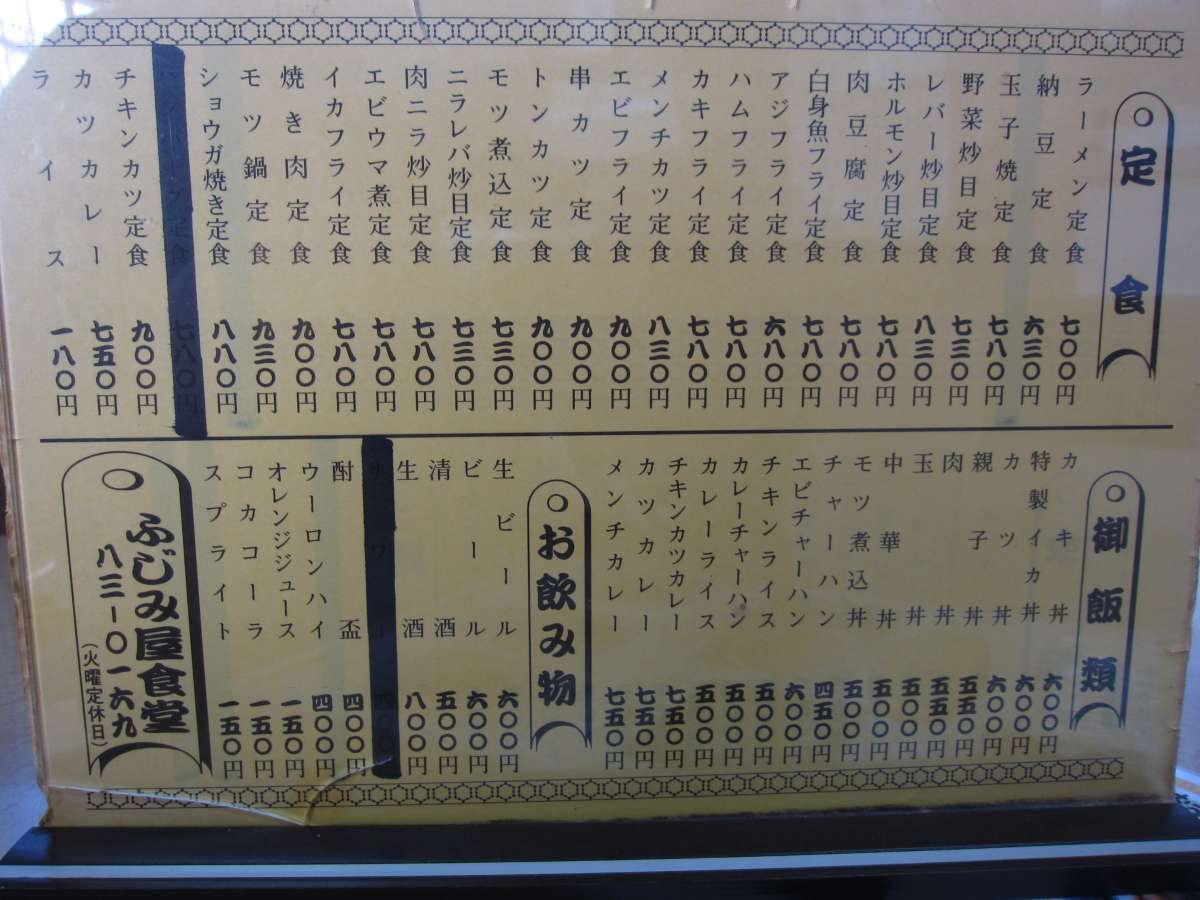 定食
ラーメン定食 七〇〇円
納豆定食 六三〇円
玉子焼定食 七八〇円
野菜炒目定食 七三〇円
レバー炒目定食 八三〇円
ホルモン炒目定食 七八〇円
肉豆腐定食 七八〇円
白身魚フライ定食 七八〇円
アジフライ定食 六八〇円
ハムフライ定食 七八〇円
カキフライ定食 七八〇円
メンチカツ定食 八三〇円
エビフライ定食 九〇〇円
串カツ定食 九〇〇円
トンカツ定食 九〇〇円
モツ煮込定食 七三〇円
ニラレバ炒目定食 七三〇円
肉ニラ炒目定食 七八〇円
エビウマ煮定食 七八〇円
イカフライ定食 七八〇円
焼き肉定食 九〇〇円
モツ鍋定食 九三〇円
ショウガ焼き定食 八八〇円
定食 七八〇円
チキンカツ定食 九〇〇円
カツカレー 七五〇円
ライス 一八〇円
御飯類
カキ丼 六〇〇円
特製イカ丼 六〇〇円
カツ丼 六〇〇円
親子丼 五五〇円
肉丼 五五〇円
玉丼 五〇〇円
中華丼 五〇〇円
モツ煮込丼 五〇〇円
チャーハン 四五〇円
エビチャーハン 六〇〇円
チキンライス 五五〇円
カレーチャーハン 五五〇円
カレーライス 五五〇円
チキンカツカレー 七五〇円
カツカレー 七五〇円
メンチカレー 七五〇円
お飲み物
生ビール 六〇〇円
ビール 六〇〇円
清酒 五〇〇円
生酒 八〇〇円
サワー
酎盃 四〇〇円
ウーロンハイ 四〇〇円
オレンジジュース 一五〇円
コカコーラ 一五〇円
スプライト 一五〇円
ふじみ屋食堂
八三-〇一六九
(火曜定休日)